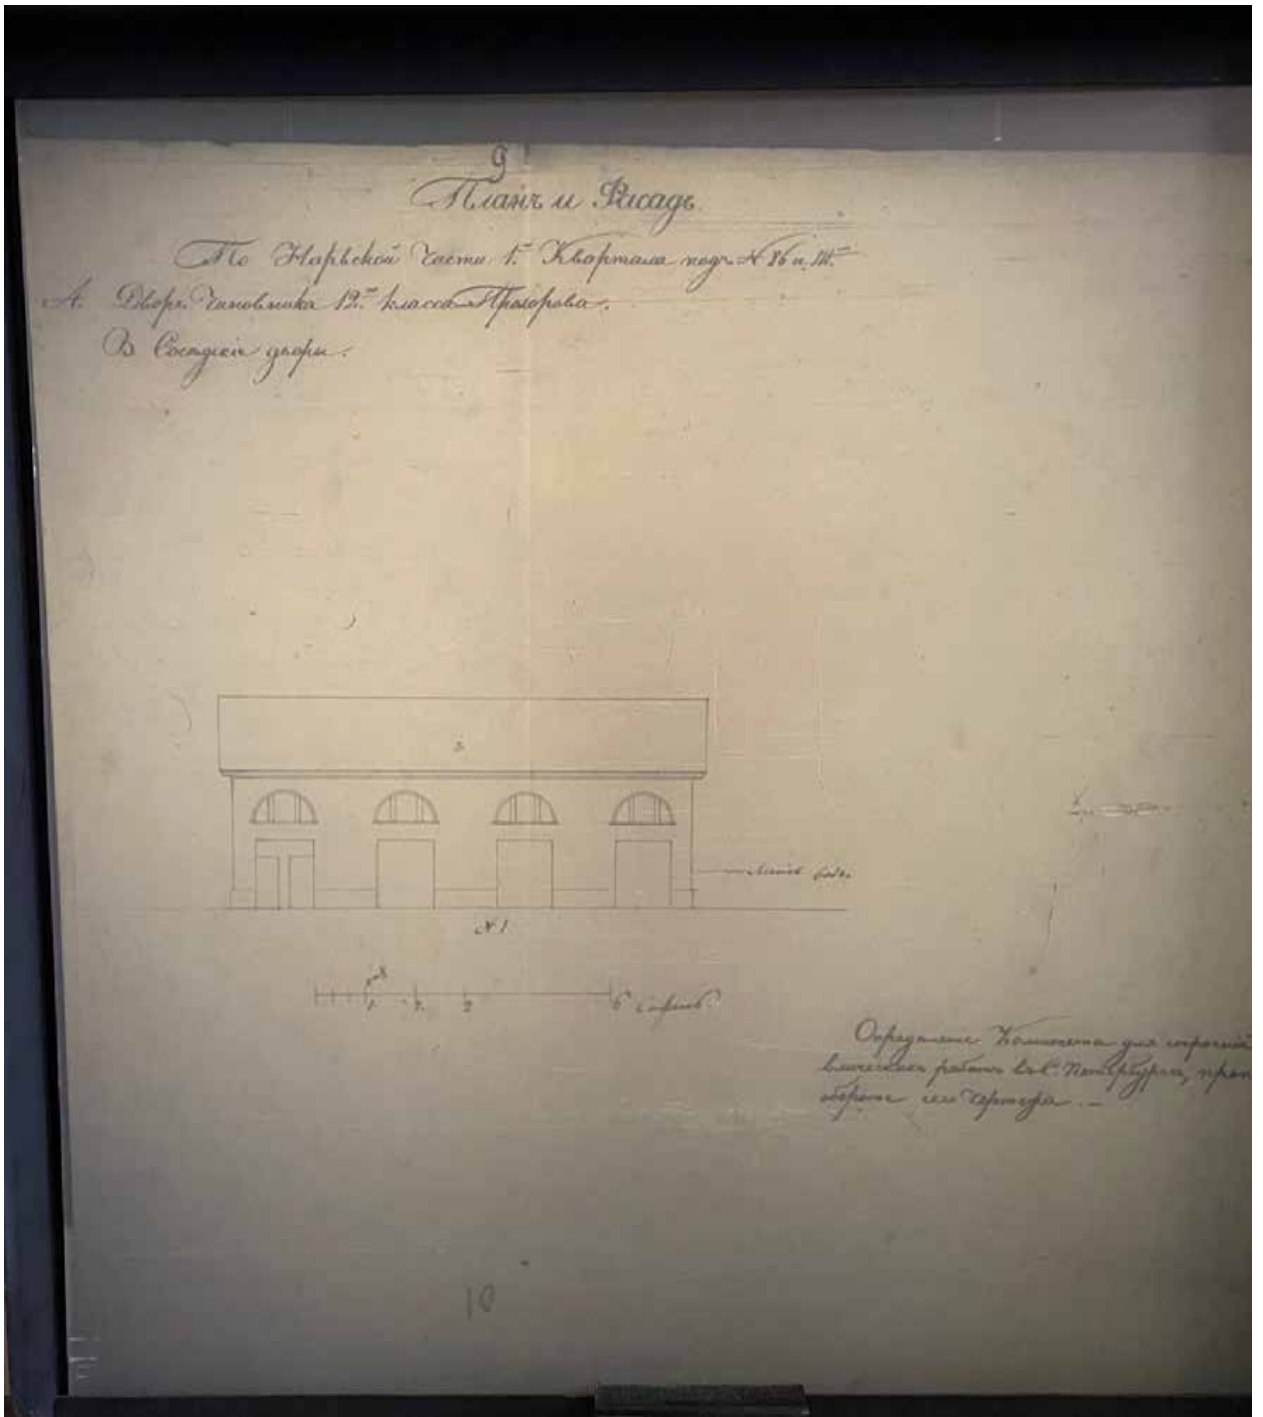 9
Планъ и Фасадъ
По Нарвской Части 1го Квартала подъ №
А. Дворъ Чиновника 12го класса Прохорова.
В Соседнiе дворы.
Линiя
№ 1
1. 2. 3 6 Сажень.
Определенiе Комитета для строенiй
работъ въ С. Петербурге,
обороте сего Чертежа. —
10